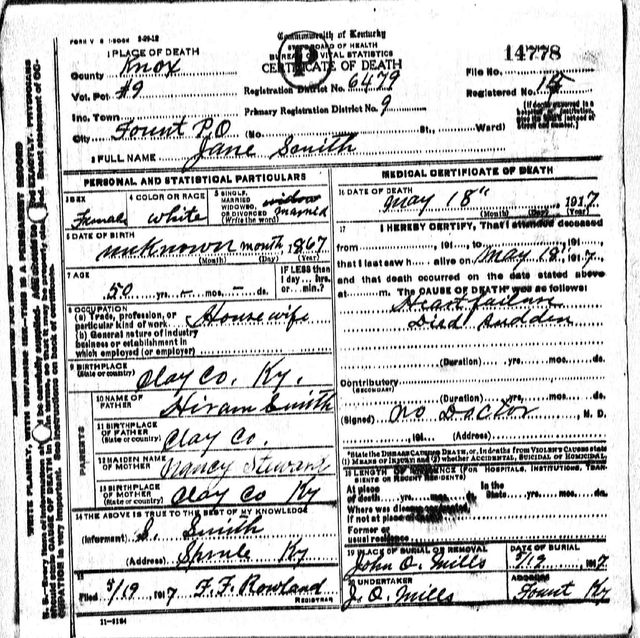 FORM V. S. 1-500M 2-29-12
Commonwealth of Kentucky
STATE BOARD OF HEALTH
BUREAU OF VITAL STATISTICS
CERTIFICATE OF DEATH
P
14778
1 PLACE OF DEATH
County Knox
Vot. Pct #9
Inc. Town
City Fount P.O (No. St., Ward)
Registration District No. 6479
Primary Registration District No. 9
File No.
Registered No. 15
(If death occurred in a hospital or institution, give its NAME instead of street and number.)
2 FULL NAME Jane Smith
PERSONAL AND STATISTICAL PARTICULARS
3 SEX Female
4 COLOR OR RACE white
5 SINGLE, MARRIED WIDOWED, OR DIVORCED (Write the word) widow married
6 DATE OF BIRTH unknown month 1867
(Month) (Day) (Year)
7 AGE
50 yrs. - mos. - ds.
IF LESS than 1 day ... hrs. or min.?
8 OCCUPATION
(a) Trade, profession, or particular kind of work Housewife
(b) General nature of industry business or establishment in which employed (or employer)
9 BIRTHPLACE (State or country) Clay Co. Ky.
PARENTS
10 NAME OF FATHER Hiram Smith
11 BIRTHPLACE OF FATHER (State or country) Clay Co.
12 MAIDEN NAME OF MOTHER Nancy Steward
13 BIRTHPLACE OF MOTHER (State or country) Clay Co Ky
14 THE ABOVE IS TRUE TO THE BEST OF MY KNOWLEDGE
(Informant) S. Smith
(Address) Sprule Ky
15
Filed 5/19 1917 F. F. Rowland
REGISTRAR
11-3184
MEDICAL CERTIFICATE OF DEATH
16 DATE OF DEATH May 18" 1917
(Month) (Day) (Year)
17 I HEREBY CERTIFY, That I attended deceased
from 191 to 191
that I last saw h alive on May 18, 1917
and that death occurred on the date stated above
at m. The CAUSE OF DEATH was as follows:
Heart failure
Died sudden
(Duration) yrs. mos. ds.
Contributory (SECONDARY)
(Duration) yrs. mos. ds.
(Signed) No Doctor M. D.
191 (Address)
*State the DISEASE CAUSING DEATH, or, in deaths from VIOLENT CAUSES state (1) MEANS OF INJURY; and (2) whether ACCIDENTAL, SUICIDAL or HOMICIDAL.
18 LENGTH OF RESIDENCE (FOR HOSPITALS, INSTITUTIONS, TRANSIENTS OR RECENT RESIDENTS)
At place of death yrs. mos. ds. In the State yrs. mos. ds.
Where was disease contracted,
If not at place
Former or usual residence
19 PLACE OF BURIAL OR REMOVAL John O. Mills
DATE OF BURIAL 5/19 1917
20 UNDERTAKER J. O. Mills
ADDRESS Fount Ky